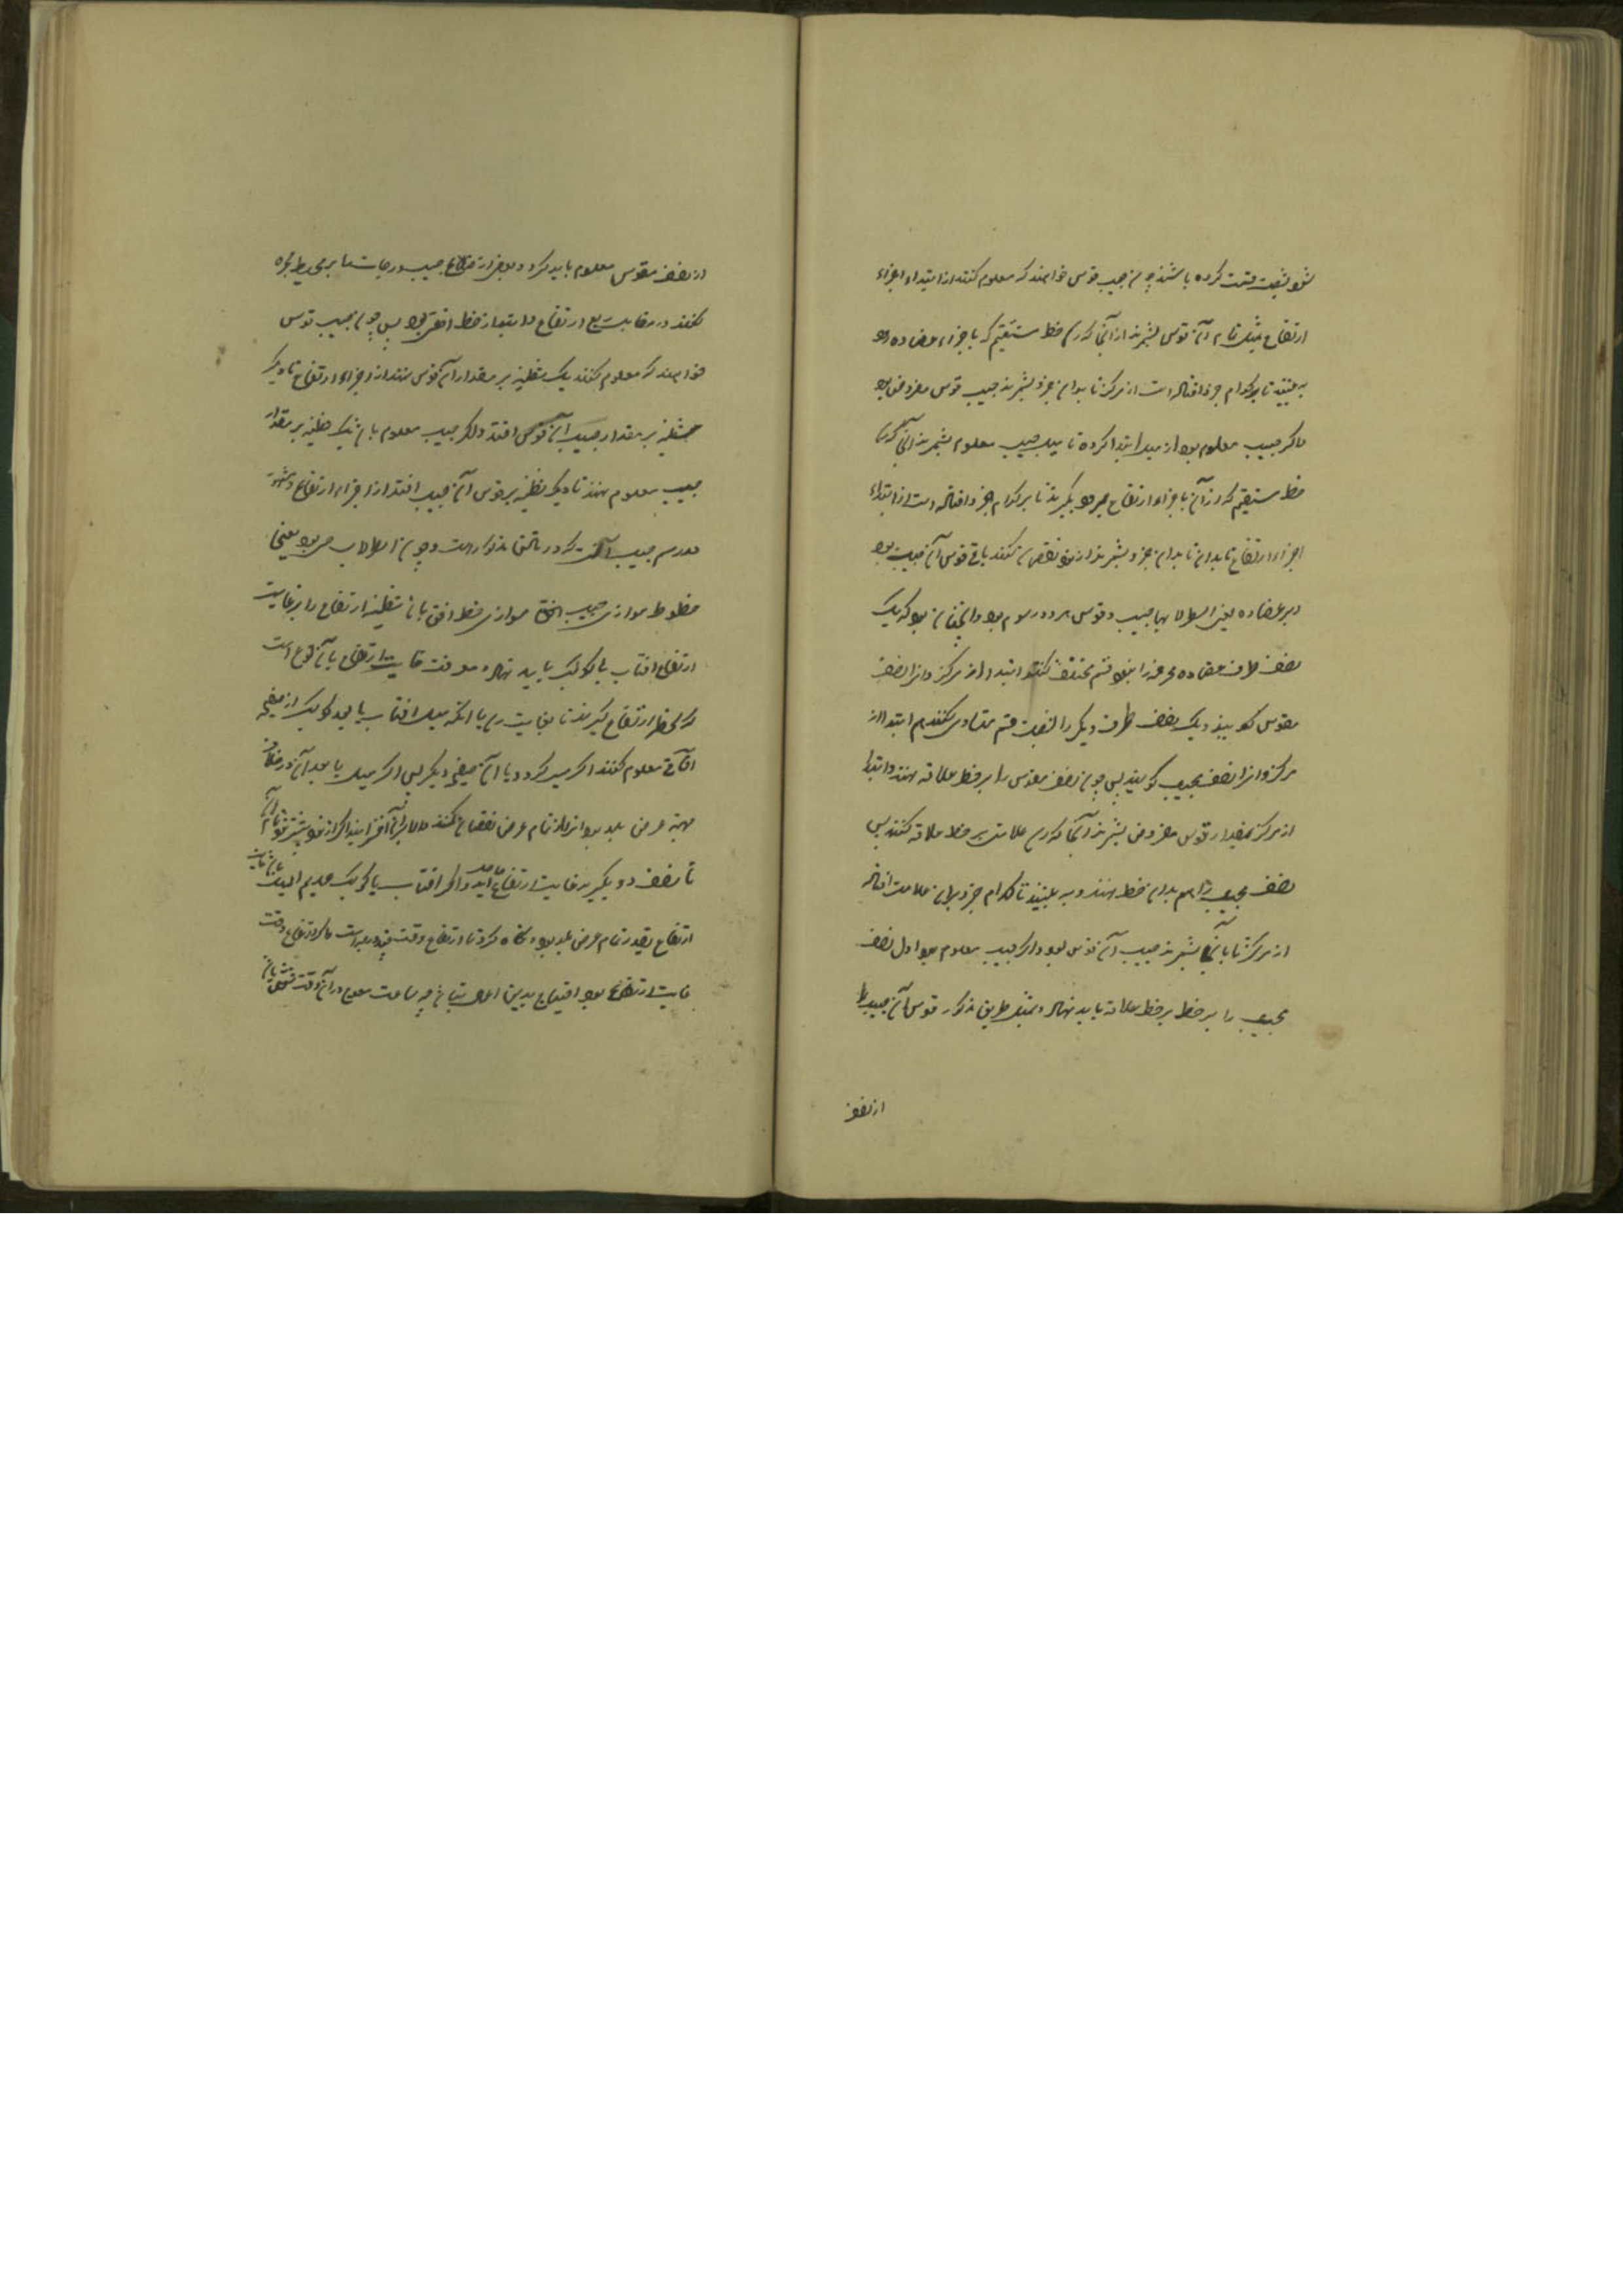 قسمت کرده باشند چون جیب قوس خواهند که معلوم کنند از ابتداء اجزاء
ارتفاع بمثل تمام آن قوس بشمرند از آنجا که رسد خط مستقیم که باجزاء عضاده رود
به بینند تا بر کدام جزو افتاده است از مرکز تا بدان جزو بشمرند جیب قوس مفروض بود
و اگر جیب معلوم بود از مبدا ابتدا کرده تا مبلغ جیب معلوم بشمرند آنجا که رسد
خط مستقیم که از آن باجزاء ارتفاع می رود بگیرند تا بر کدام جزو افتاده است از ابتداء
اجزاء ارتفاع تا بدان جزو بشمرند از نود نقصان کنند باقی قوس آن جیب بود
و بر عضاده بعضی اسطرلابها جیب و قوس هر دو مرسوم بود و آنچنان بود که یک
نصف طرف عضاده محرفه را بنود قسم مختلف کنند ابتدا از مرکز و آنرا نصف
مقوس گویند و یک نصف طرف دیگر را بشصت قسم متساوی کنند هم ابتدا از
مرکز و آنرا نصف مجیب گویند پس چون نصف مقوس را بر خط علاقه نهند و ابتدا
از مرکز بمقدار قوس مفروض بشمرند آنجا که رسد علامتی بر خط علاقه کنند پس
نصف مجیب را هم بدان خط نهند و به بینند تا کدام جزو بدان علامت افتاده
از مرکز تا بآنجا بشمرند جیب آن قوس بود و اگر جیب معلوم بود اول نصف
مجیب را بر خط بر خط علاقه باید نهاد و بمثل طریق مذکور قوس آن جیب را
از نصف
از نصف مقوس معلوم باید کرد و بعضی ارتفاع جیب درجات را بر محیط حجره
کنند در مقابلت ربع ارتفاع و ابتدا از خط افق بود پس چون جیب قوس
خواهند که معلوم کنند یک شظیه بر مقدار آن قوس نهند از اجزاء ارتفاع تا دیگر
شظیه بر مقدار جیب آن قوس افتد و اگر جیب معلوم باشد یک شظیه بر مقدار
جیب معلوم نهند تا دیگر شظیه بر قوس آن جیب افتد از اجزاء ارتفاع و مشهور
در رسم جیب آنست که در بالا مذکور است و چون اسطرلاب مجیب بود یعنی
خطوط موازی جیب افق موازی خط افق باشد شظیه ارتفاع را بر غایت
ارتفاع آفتاب یا کوکب باید نهاد و معرفت غایت ارتفاع بآن نوع است
که لحظه لحظه ارتفاع گیرند تا بغایت رسد یا آنکه میل آفتاب یا بعد کوکب از صفیحه
آفاقی معلوم کنند اگر میسر گردد یا از صفیحه دیگر پس اگر میل یا بعد آن در خلاف
جهة عرض بلد بود از تمام عرض نقصان کنند و الا بر آن افزایند اگر از نود بیشتر شود تمام آن
تا نصف دور بگیرند غایت ارتفاع حاصل آید و اگر آفتاب یا کوکب عدیم المیل باشد غایت
ارتفاع بقدر تمام عرض بلد بود و نگاه کرد تا ارتفاع وقت چند درجه است و اگر ارتفاع وقت
غایت ارتفاع بود احتیاج بدین اعمال نباشد چه ساعت معوج در آن وقت شش باشد